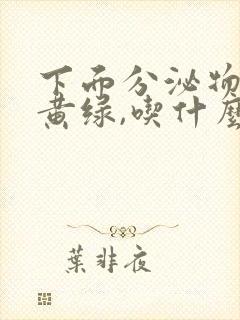 下面分泌物
黄绿,喫什麼
葉非夜